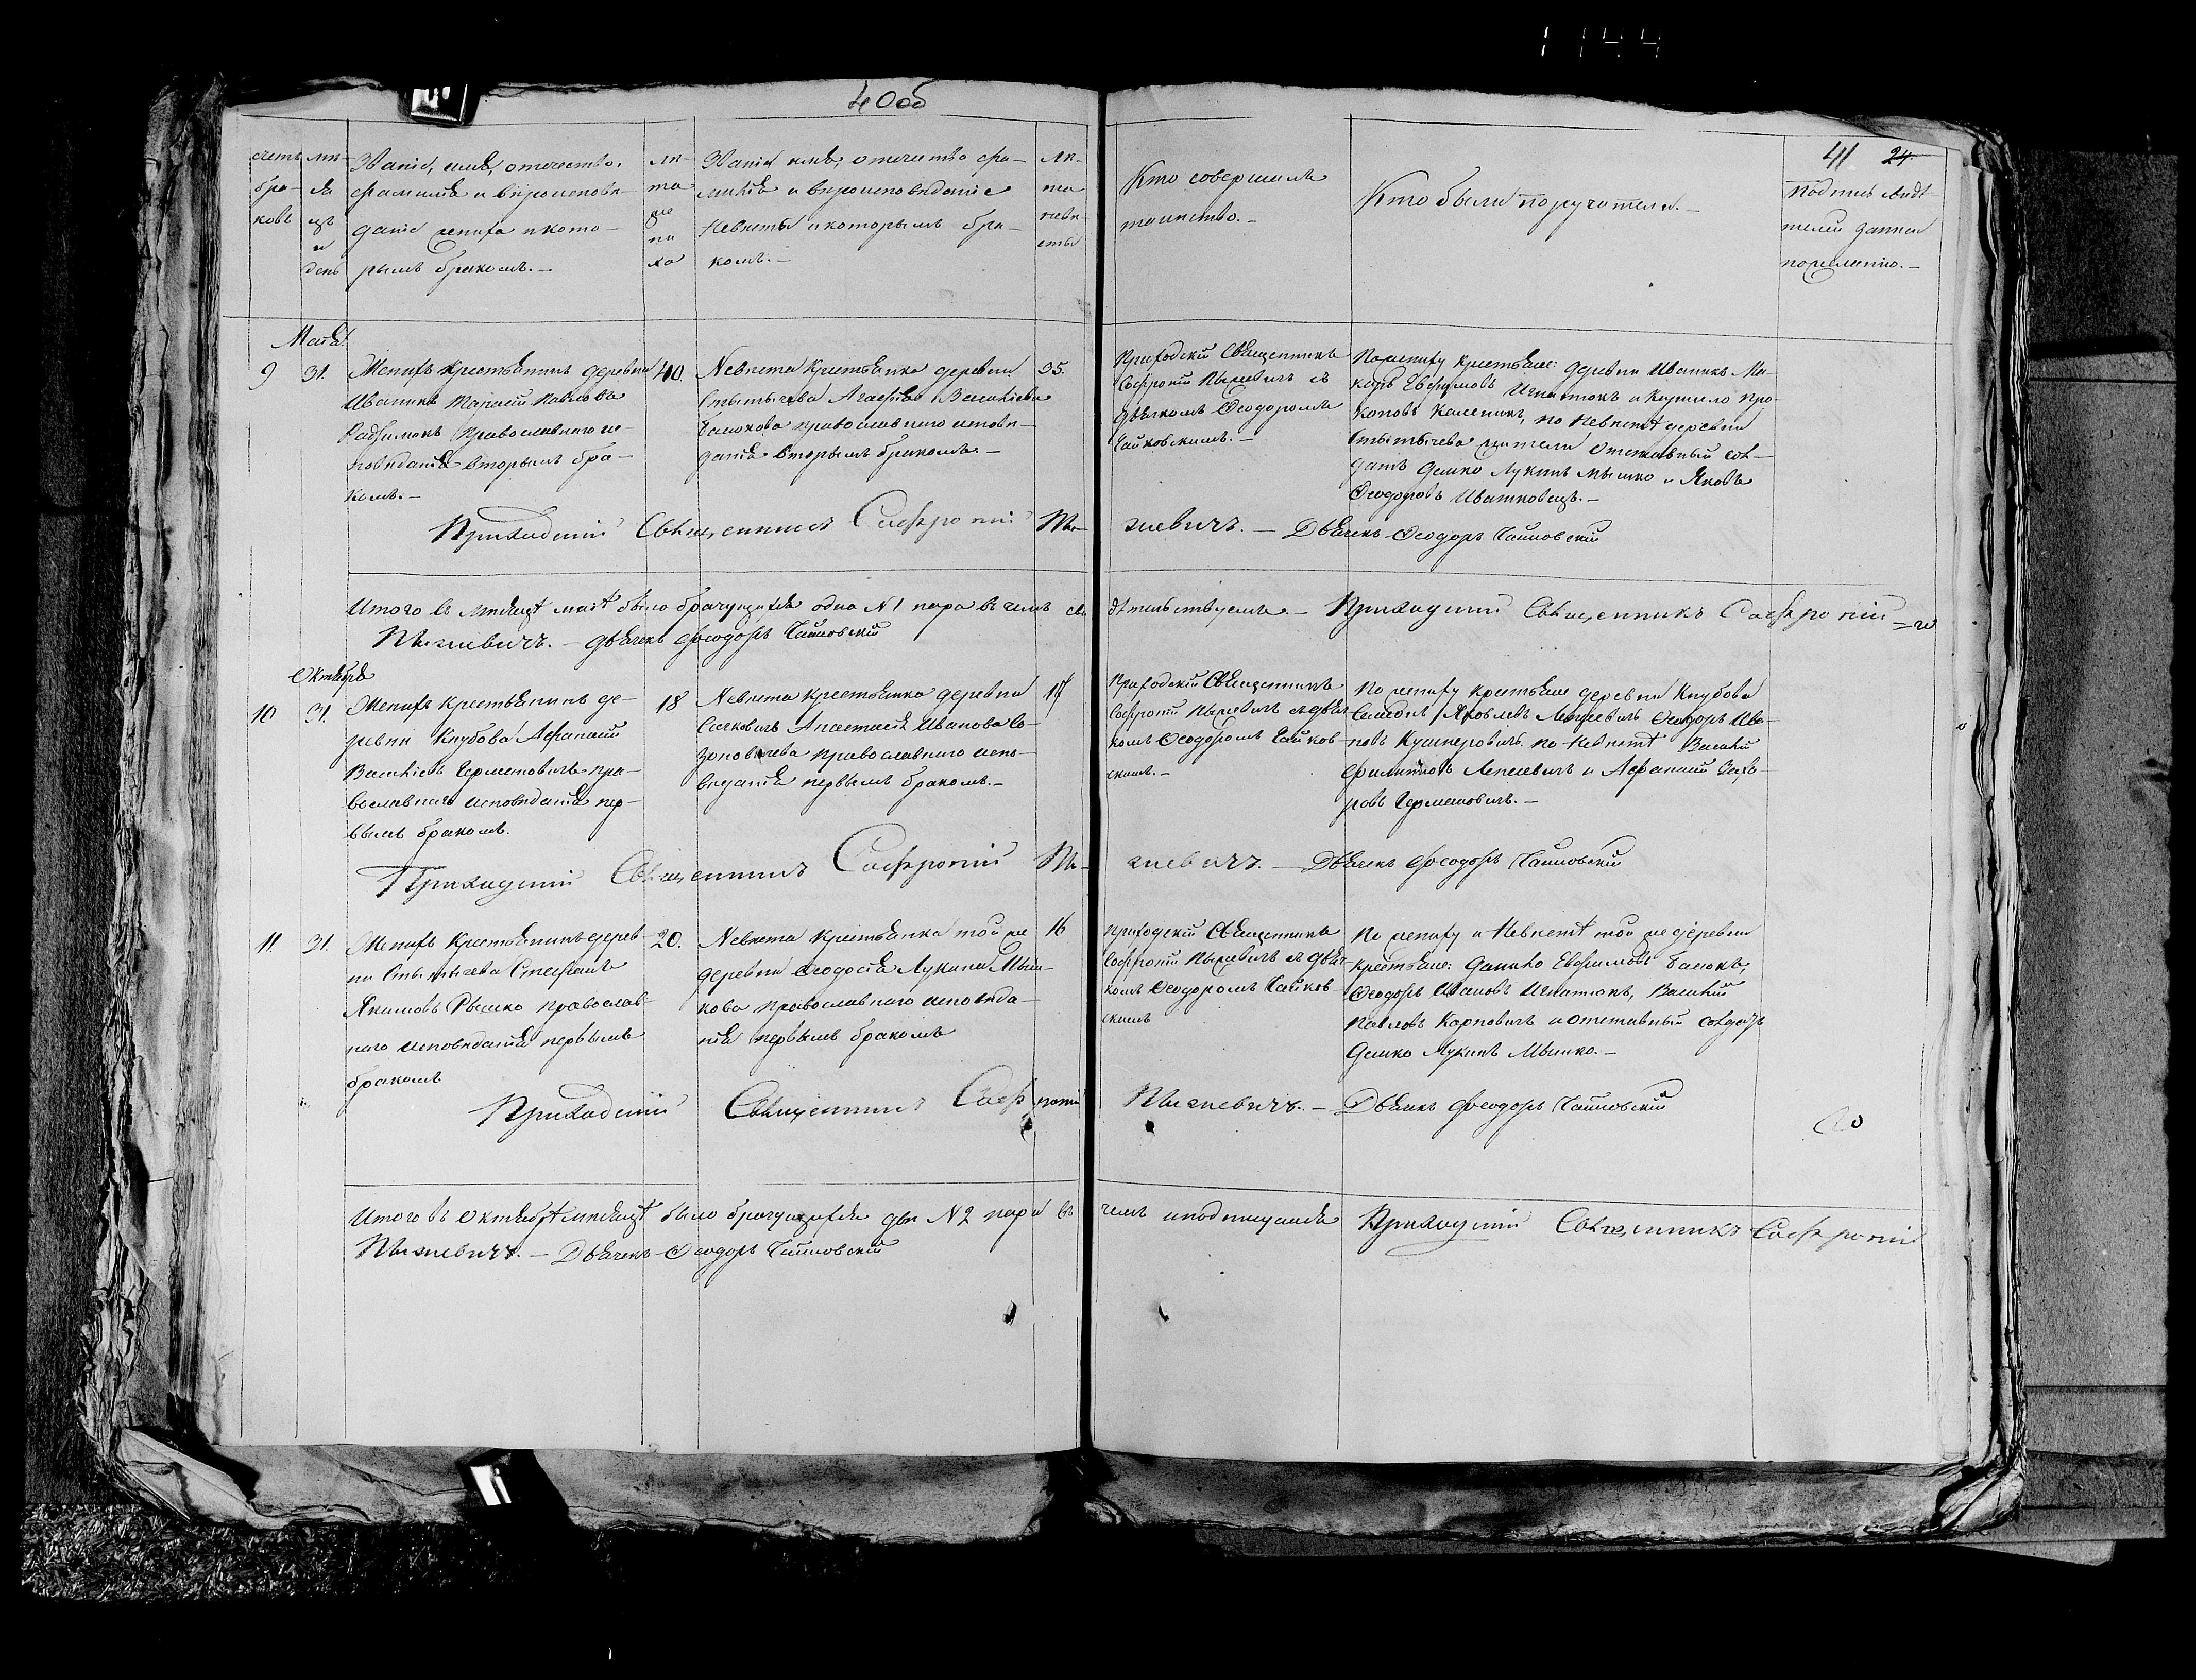 1144
40об
41 24
счетъ бра-ковъ
мѣ-ся цъ и день
Званіе, имя, отечество,
фамилія и вѣроисповѣ-
даніе жениха и кото-
рымъ бракомъ. —
лѣ-та же ни ха
Званіе имя, отечество фа-
милія и вѣроисповѣданіе
Невѣсты и которымъ бра-
комъ. —
Лѣ-та невѣ-сты
Кто совершалъ
таинство. —
Кто были поручители. —
Подпись свидѣ-
телей записи
по желанію. —
Маія
9 31.
Женихъ крестьянинъ деревни
Иваникъ Тарасій Павловъ
православнаго ис-
повѣданія вторымъ бра-
комъ. —
40.
Невѣста крестьянка деревни
Стытычева Агафія Василіева
Балюкова православнаго исповѣ-
данія вторымъ бракомъ. —
35.
Приходскій Священникъ
Софроній Пыжевичъ съ
дьячкомъ Ѳеодоромъ
Чайковскимъ. —
По жениху крестьяне: деревни Иваникъ Ма-
каръ Евфимовъ Игнатюкъ и Кирило Про-
коповъ Каленикъ, по невѣстѣ деревни
Стытычева жители отставный сол-
датъ Дашко Лукинъ Мышко и Яковъ
Ѳеодоровъ Ивашковецъ. —
Приходскій Священникъ Софроній Пы-
жевичъ. — Дьячекъ Ѳеодоръ Чайковскій
Итого въ мѣсяцѣ маіѣ было брачущихся одна №1 пара въ чемъ сви-
дѣтельствуемъ — Приходскій Священникъ Софроній
Пыжевичъ. — дьячекъ Ѳеодоръ Чайковскій
Октября
10 31.
Женихъ крестьянинъ де-
ревни Кнубова Афанасій
Василіевъ Германовичъ пра-
вославнаго исповѣданія пер-
вымъ бракомъ.
18
Невѣста крестьянка деревни
Сачковичъ Анастасія Иванова Со-
зоновичева православнаго испо-
вѣданія первымъ бракомъ. —
Приходскій Священникъ
Софроній Пыжевичъ съ дьяч-
комъ Ѳеодоромъ Чайков-
скимъ. —
По жениху крестьяне деревни Кнубова
Семеонъ Яковлевъ Лемешевичъ Ѳеодоръ Ива-
новъ Кушнеровичъ. по невѣстѣ Василій
Филиповъ Лемешевичъ и Афанасій Заха-
ровъ Германовичъ. —
Приходскій Священникъ Софроній Пы-
жевичъ. — Дьячекъ Ѳеодоръ Чайковскій
11. 31.
Женихъ крестьянинъ дерев-
ни Стытычева Стефанъ
Якимовъ Рышко православ-
наго исповѣданія первымъ
бракомъ
20.
Невѣста крестьянка той же
деревни Ѳеодосія Лукина Мыш-
кова православнаго исповѣда-
нія первымъ бракомъ
16
Приходскій Священникъ
Софроній Пыжевичъ съ дьяч-
комъ Ѳеодоромъ Чайков-
скимъ
По жениху и Невѣстѣ той же деревни
крестьяне: Данило Евфимовъ Балюкъ,
Ѳеодоръ Ивановъ Игнатюкъ, Василій
Павловъ Карповичъ и отставный солдатъ
Дашко Лукинъ Мышко. —
Приходскій Священникъ Софроній
Пыжевичъ. — Дьячекъ Ѳеодоръ Чайковскій
Итого въ Октябрѣ мѣсяцѣ было брачущихся двѣ №2 пары въ
чемъ и подписуемся Приходскій Священникъ Софроній
Пыжевичъ. — Дьячекъ Ѳеодоръ Чайковскій